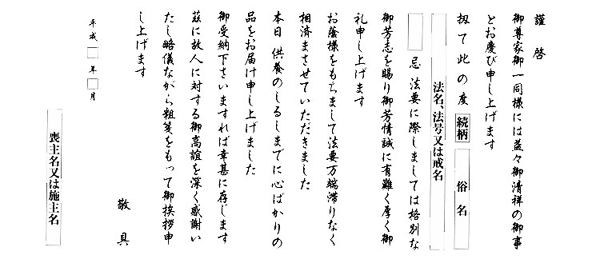 謹啓
御尊家御一同様には益々御清祥の御事
とお慶び申し上げます
扨て此の度 続柄 俗名
法名、法号又は戒名
忌 法要に際しましては格別な
御芳志を賜り御芳情誠に有難く厚く御
礼申し上げます
お蔭様をもちまして法要万端滞りなく
相済まさせていただきました
本日 供養のしるしまでに心ばかりの
品をお届け申し上げました
御受納下さいますれば幸甚に存します
茲に故人に対する御高誼を深く感謝い
たし略儀ながら粗箋をもって御挨拶申
し上げます
敬具
平成 年 月
喪主名又は施主名